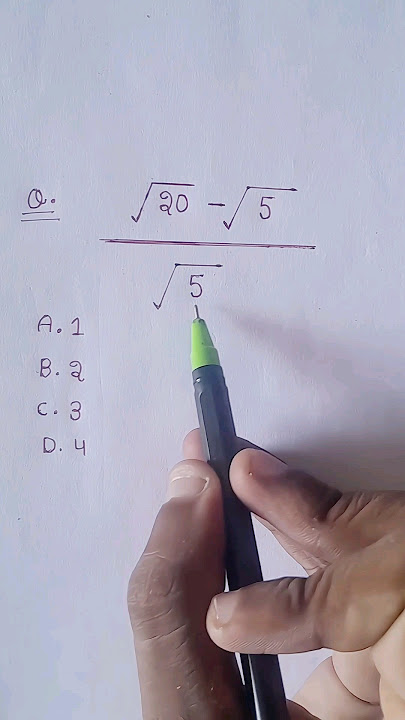 Q. √20 - √5
√5
A. 1
B. 2
C. 3
D. 4